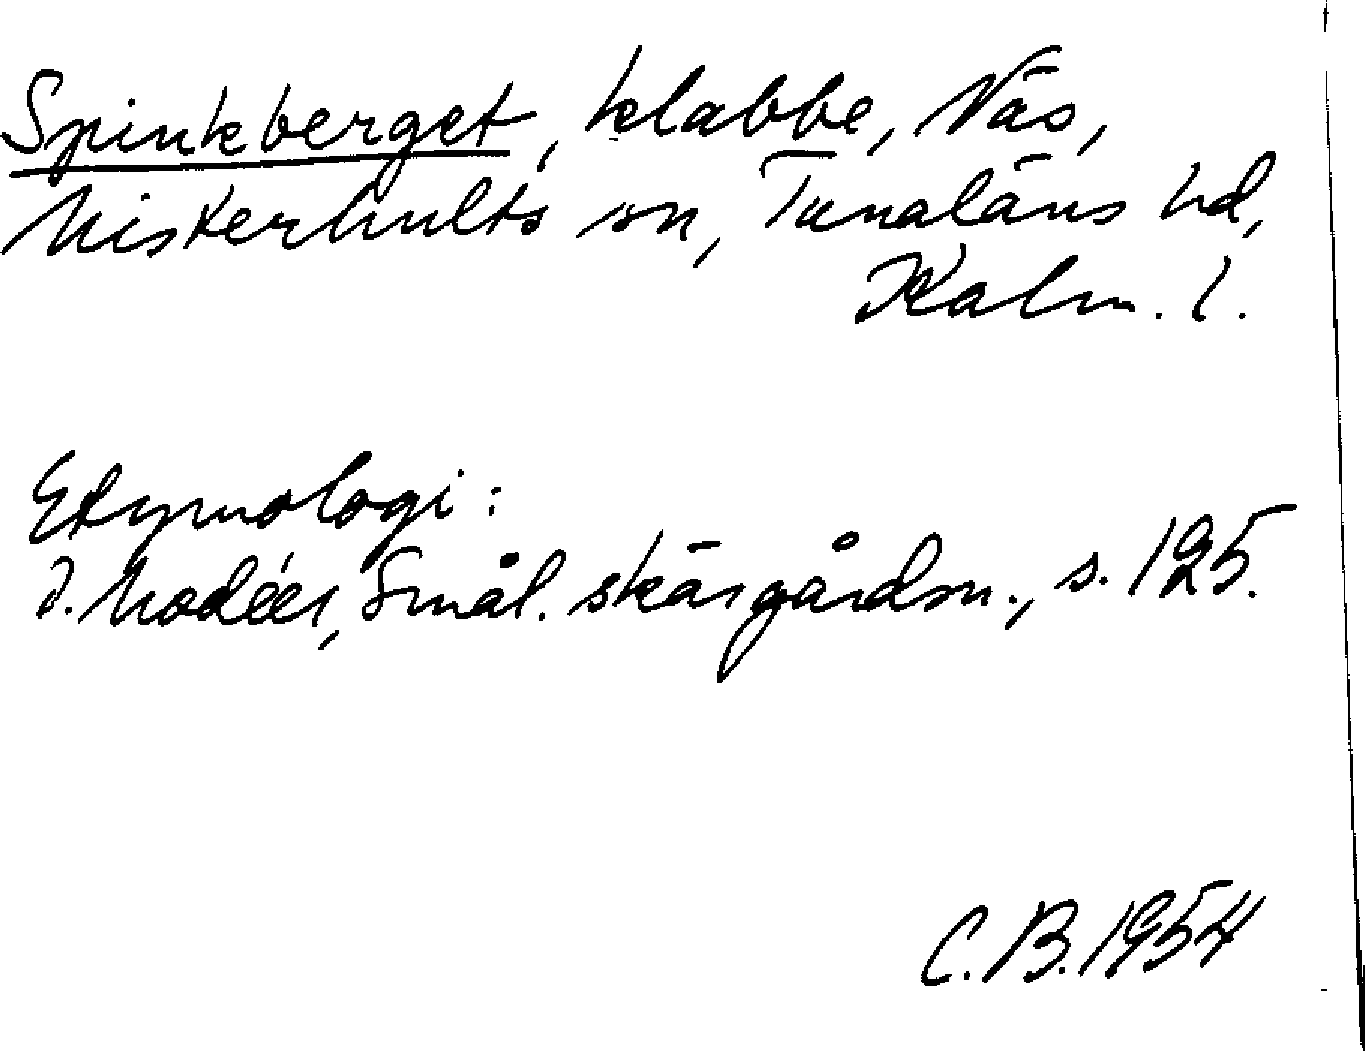 Spinkberget, klabbe, Näs,
Misterhults sn, Tunaläns hd,
Kalm. l.
Etymologi:
I. Modéer, Smål. skärgårdsn., s. 125.
C.B. 1954